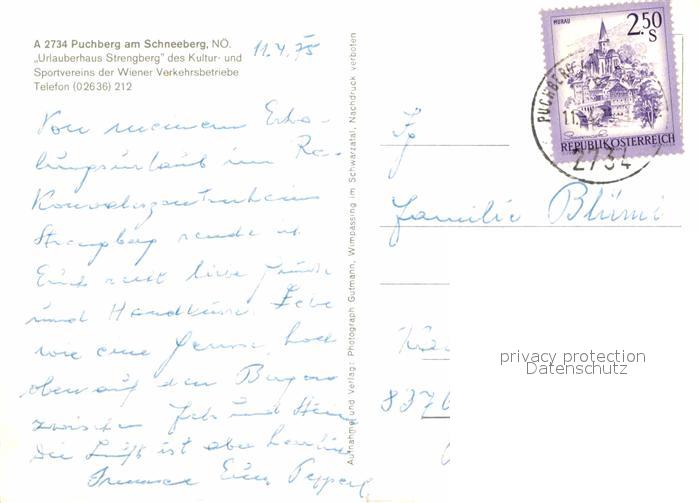 A 2734 Puchberg am Schneeberg, NÖ.
„Urlauberhaus Strengberg" des Kultur- und
Sportvereins der Wiener Verkehrsbetriebe
Telefon (02636) 212
11.4.75
Von meinem Erho-
lungsurlaub im Re-
Konvaleszentenheim
Strengberg sende ich
Euch recht liebe Grüße
und Handküsse. Lebe
wie eine Gemse, hoch
oben auf den Bergen
zwischen Fels und
Die Luft ist aber herrlich
Euer Pepperl
Aufnahme und Verlag: Photograph Gutmann, Wimpassing im Schwarzatal, Nachdruck verboten
MURAU
2.50
S
REPUBLIK ÖSTERREICH
PUCHBERG
11.
2734
Familie
privacy protection
Datenschutz
837